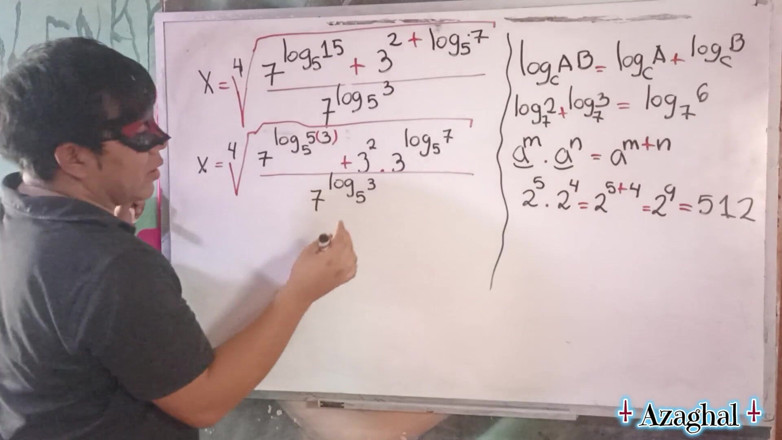 X = ⁴√((7^(log₅15) + 3^(2 + log₅7)) / 7^(log₅3))
X = ⁴√((7^(log₅5(3)) + 3² · 3^(log₅7)) / 7^(log₅3))
log_C AB = log_C A + log_C B
log₇2 + log₇3 = log₇6
a^m · a^n = a^(m+n)
2⁵ · 2⁴ = 2^(5+4) = 2⁹ = 512
Azaghal